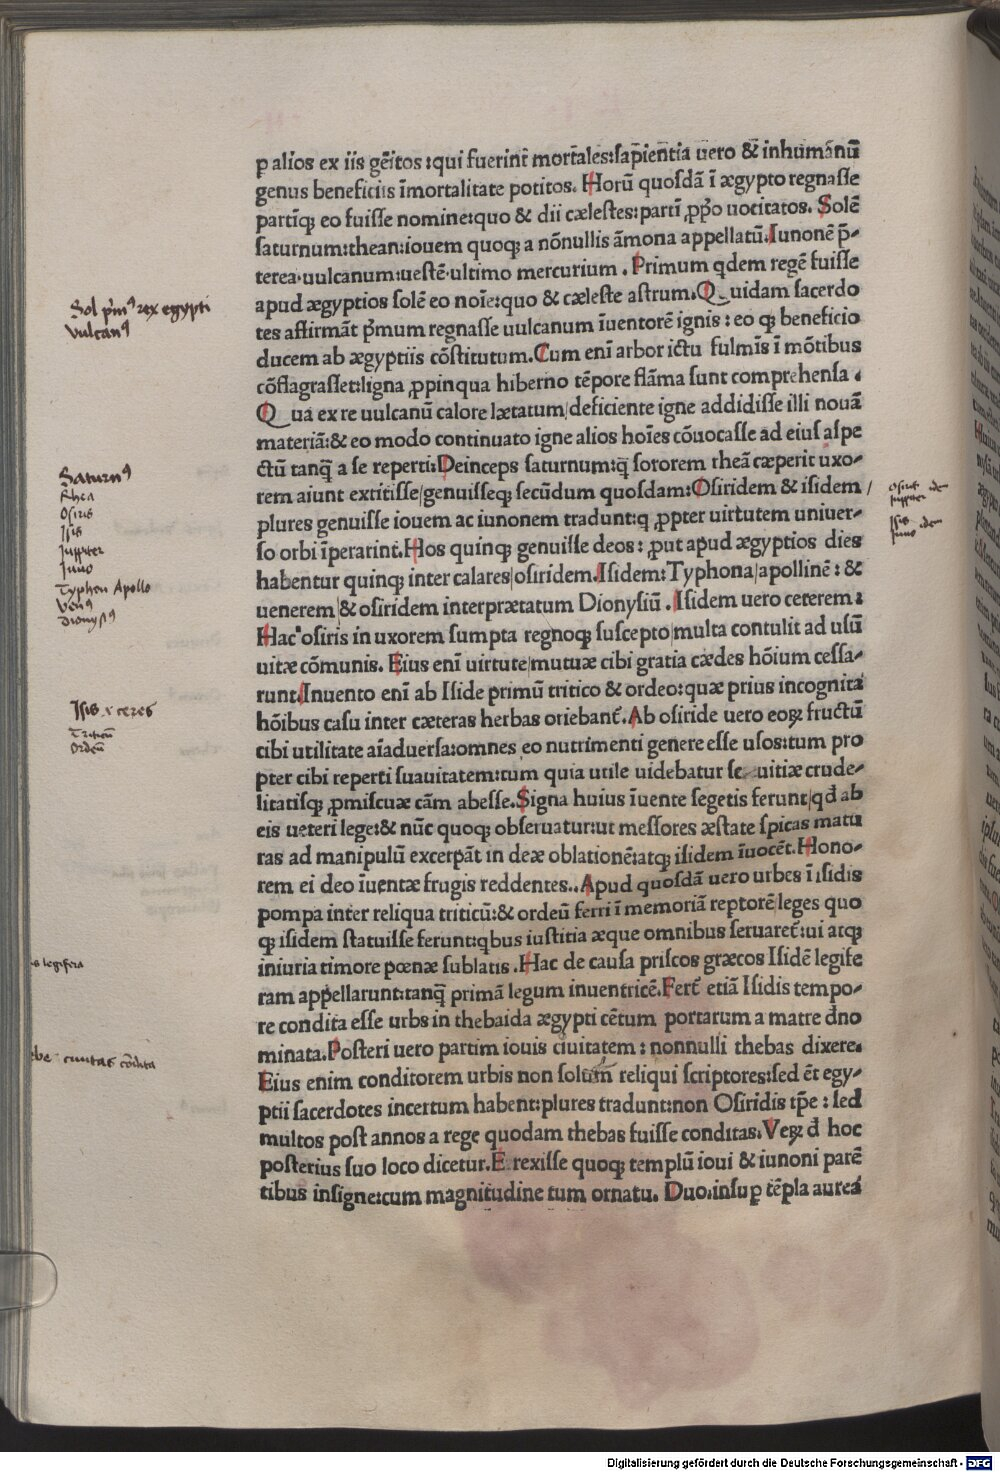 ꝑ alios ex iis gēitos : qui fuerint̄ mortales: sap̄ientia uero & inhumanū
genus beneficiis īmortalitate potitos. Horū quosdā ī ægypto regnasse
partīqꝫ eo fuisse nomine: quo & dii cælestes: partī ꝓpꝓo uocitatos. Solē
saturnum: thean: iouem quoqꝫ a nōnullis āmona appellatū. Iunonē p̄-
terea. uulcanum: uestē. ultimo mercurium . Primum qdem regē fuisse
apud ægyptios solē eo noīe: quo & cæleste astrum. Quidam sacerdo
tes affirmāt p̄mum regnasse uulcanum īuentorē ignis : eo qꝫ beneficio
ducem ab ægyptiis cōstitutum. Cum enī arbor ictu fulmīs ī mōtibus
cōflagrasset: ligna ꝓpinqua hiberno tēpore flāma sunt comprehensa .
Qua ex re uulcanū calore lætatum/ deficiente igne addidisse illi nouā
materiā: & eo modo continuato igne alios hoīes cōuocasse ad eius aspe
ctū tanq̄ a se reperti: Deinceps saturnum: q̄ sororem rheā cæperit uxo-
rem aiunt extitisse/ genuisseqꝫ secūdum quosdam: Osiridem & isidem /
plures genuisse iouem ac iunonem tradunt: q ꝓpter uirtutem uniuer-
so orbi īperarint. Hos quinqꝫ genuisse deos : ꝓut apud ægyptios dies
habentur quinqꝫ inter calares/ osiridem. Isidem: Typhona/ apollinē : &
uenerem/ & osiridem interprætatum Dionysiū . Isidem uero cererem :
Hac osiris in uxorem sumpta regnoqꝫ suscepto/ multa contulit ad usū
uitæ cōmunis. Eius enī uirtute/ mutuæ cibi gratia cædes hōium cessa-
runt. Inuento enī ab Iside primū tritico & ordeo: quæ prius incognita
hōibus casu inter cæteras herbas oriebant̄. Ab osiride uero eoꝝ fructū
cibi utilitate aīaduersa: omnes eo nutrimenti genere esse usos: tum pro
pter cibi reperti suauitatem: tum quia utile uidebatur se uitiæ crude-
litatisqꝫ ꝓmiscuæ cām abesse. Signa huius īuente segetis ferunt/ qđ ab
eis ueteri lege: & nūc quoqꝫ obseruatur: ut messores æstate spicas matu
ras ad manipulū excerpāt in deæ oblationē: atqꝫ isidem īuocēt. Hono-
rem ei deo īuentæ frugis reddentes. . Apud quosdā uero urbes ī isidis
pompa inter reliqua triticū: & ordeū ferri ī memoriā reptorē/ leges quo
qꝫ isidem statuisse ferunt: qbus iustitia æque omnibus seruaret̄: ui atqꝫ
iniuria timore pœnæ sublatis . Hac de causa priscos græcos Isidē legife
ram appellarunt: tanq̄ primā legum inuentricē. Fert̄ etiā Isidis tempo-
re condita esse urbs in thebaida ægypti cētum portarum a matre đno
minata. Posteri uero partim iouis ciuitatem : nonnulli thebas dixere.
Eius enim conditorem urbis non solum reliqui scriptores: sed ēt egy-
ptii sacerdotes incertum habent: plures tradunt: non Osiridis tp̄e : sed
multos post annos a rege quodam thebas fuisse conditas. Veꝝ đ hoc
posterius suo loco dicetur. Erexisse quoqꝫ templū ioui & iunoni parē
tibus insigne: cum magnitudine tum ornatu. Duo: insuꝑ tēpla aurea
Sol p̄mꝰ rex egypti
Vulcanꝰ
Saturnꝰ
Rhea
Osiris
Isis
Juppiter
Juno
Typhon Apollo
Venꝰ
Dionysꝰ
Isis ceres
Triticū
Ordeū
legifera
ciuitas cōdita
Osiris idem
Juppiter
Isis idem
Juno
Digitalisierung gefördert durch die Deutsche Forschungsgemeinschaft - DFG